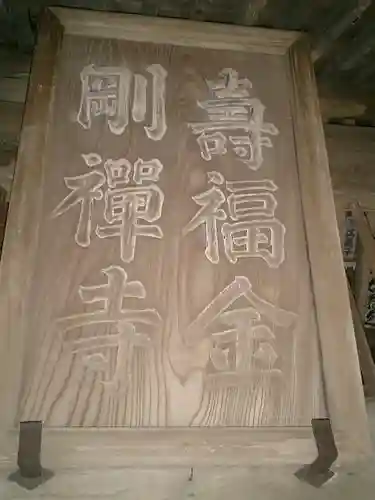 壽福金
剛禪寺